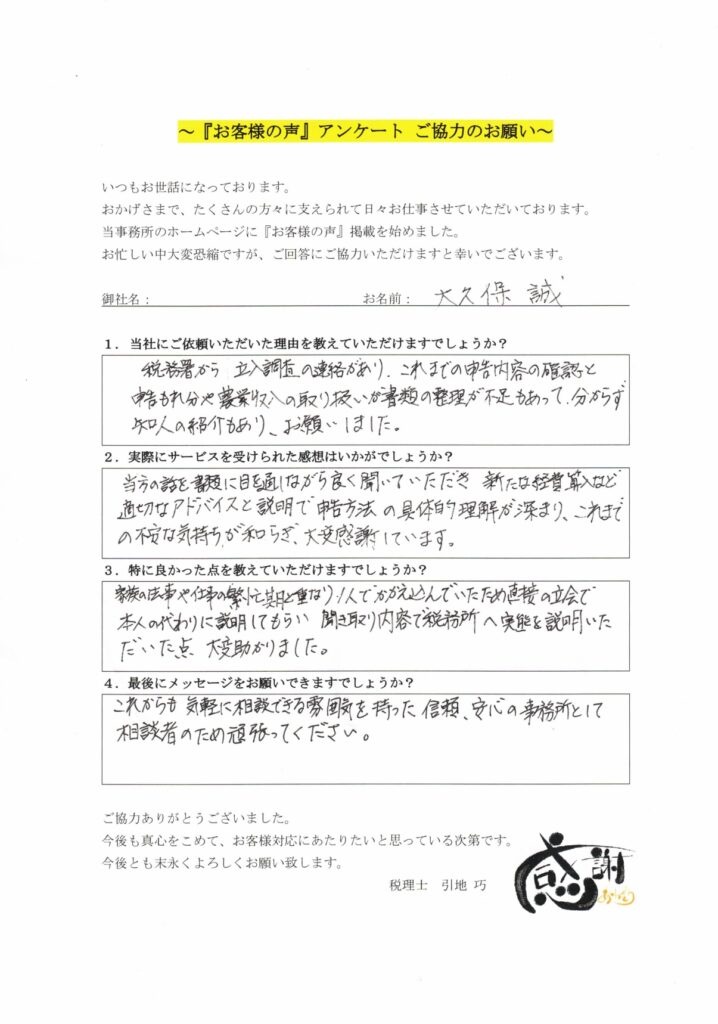 ～『お客様の声』アンケート ご協力のお願い～
いつもお世話になっております。
おかげさまで、たくさんの方々に支えられて日々お仕事させていただいております。
当事務所のホームページに『お客様の声』掲載を始めました。
お忙しい中大変恐縮ですが、ご回答にご協力いただけますと幸いでございます。
御社名： お名前： 大久保 誠
１．当社にご依頼いただいた理由を教えていただけますでしょうか？
税務署から 立入調査の連絡があり、これまでの申告内容の確認と
申告もれ分や農業収入の取り扱いが書類の整理が不足もあって、分からず
知人の紹介もあり、お願いしました。
２．実際にサービスを受けられた感想はいかがでしょうか？
当方の話を書類に目を通しながら良く聞いていただき 新たな経費算入など
適切なアドバイスと説明で申告方法の具体的理解が深まり、これまで
の不安な気持ちが和らぎ、大変感謝しています。
３．特に良かった点を教えていただけますでしょうか？
家族の法事や仕事の繁忙期と重なり1人でかかえ込んでいたため直接の立会で
本人の代わりに説明してもらい 聞き取り内容で税務所へ実態を説明いた
だいた点 大変助かりました。
４．最後にメッセージをお願いできますでしょうか？
これからも 気軽に相談できる雰囲気を持った 信頼、安心の事務所として
相談者のため頑張ってください。
ご協力ありがとうございました。
今後も真心をこめて、お客様対応にあたりたいと思っている次第です。
今後とも末永くよろしくお願い致します。
税理士 引地 巧
感謝